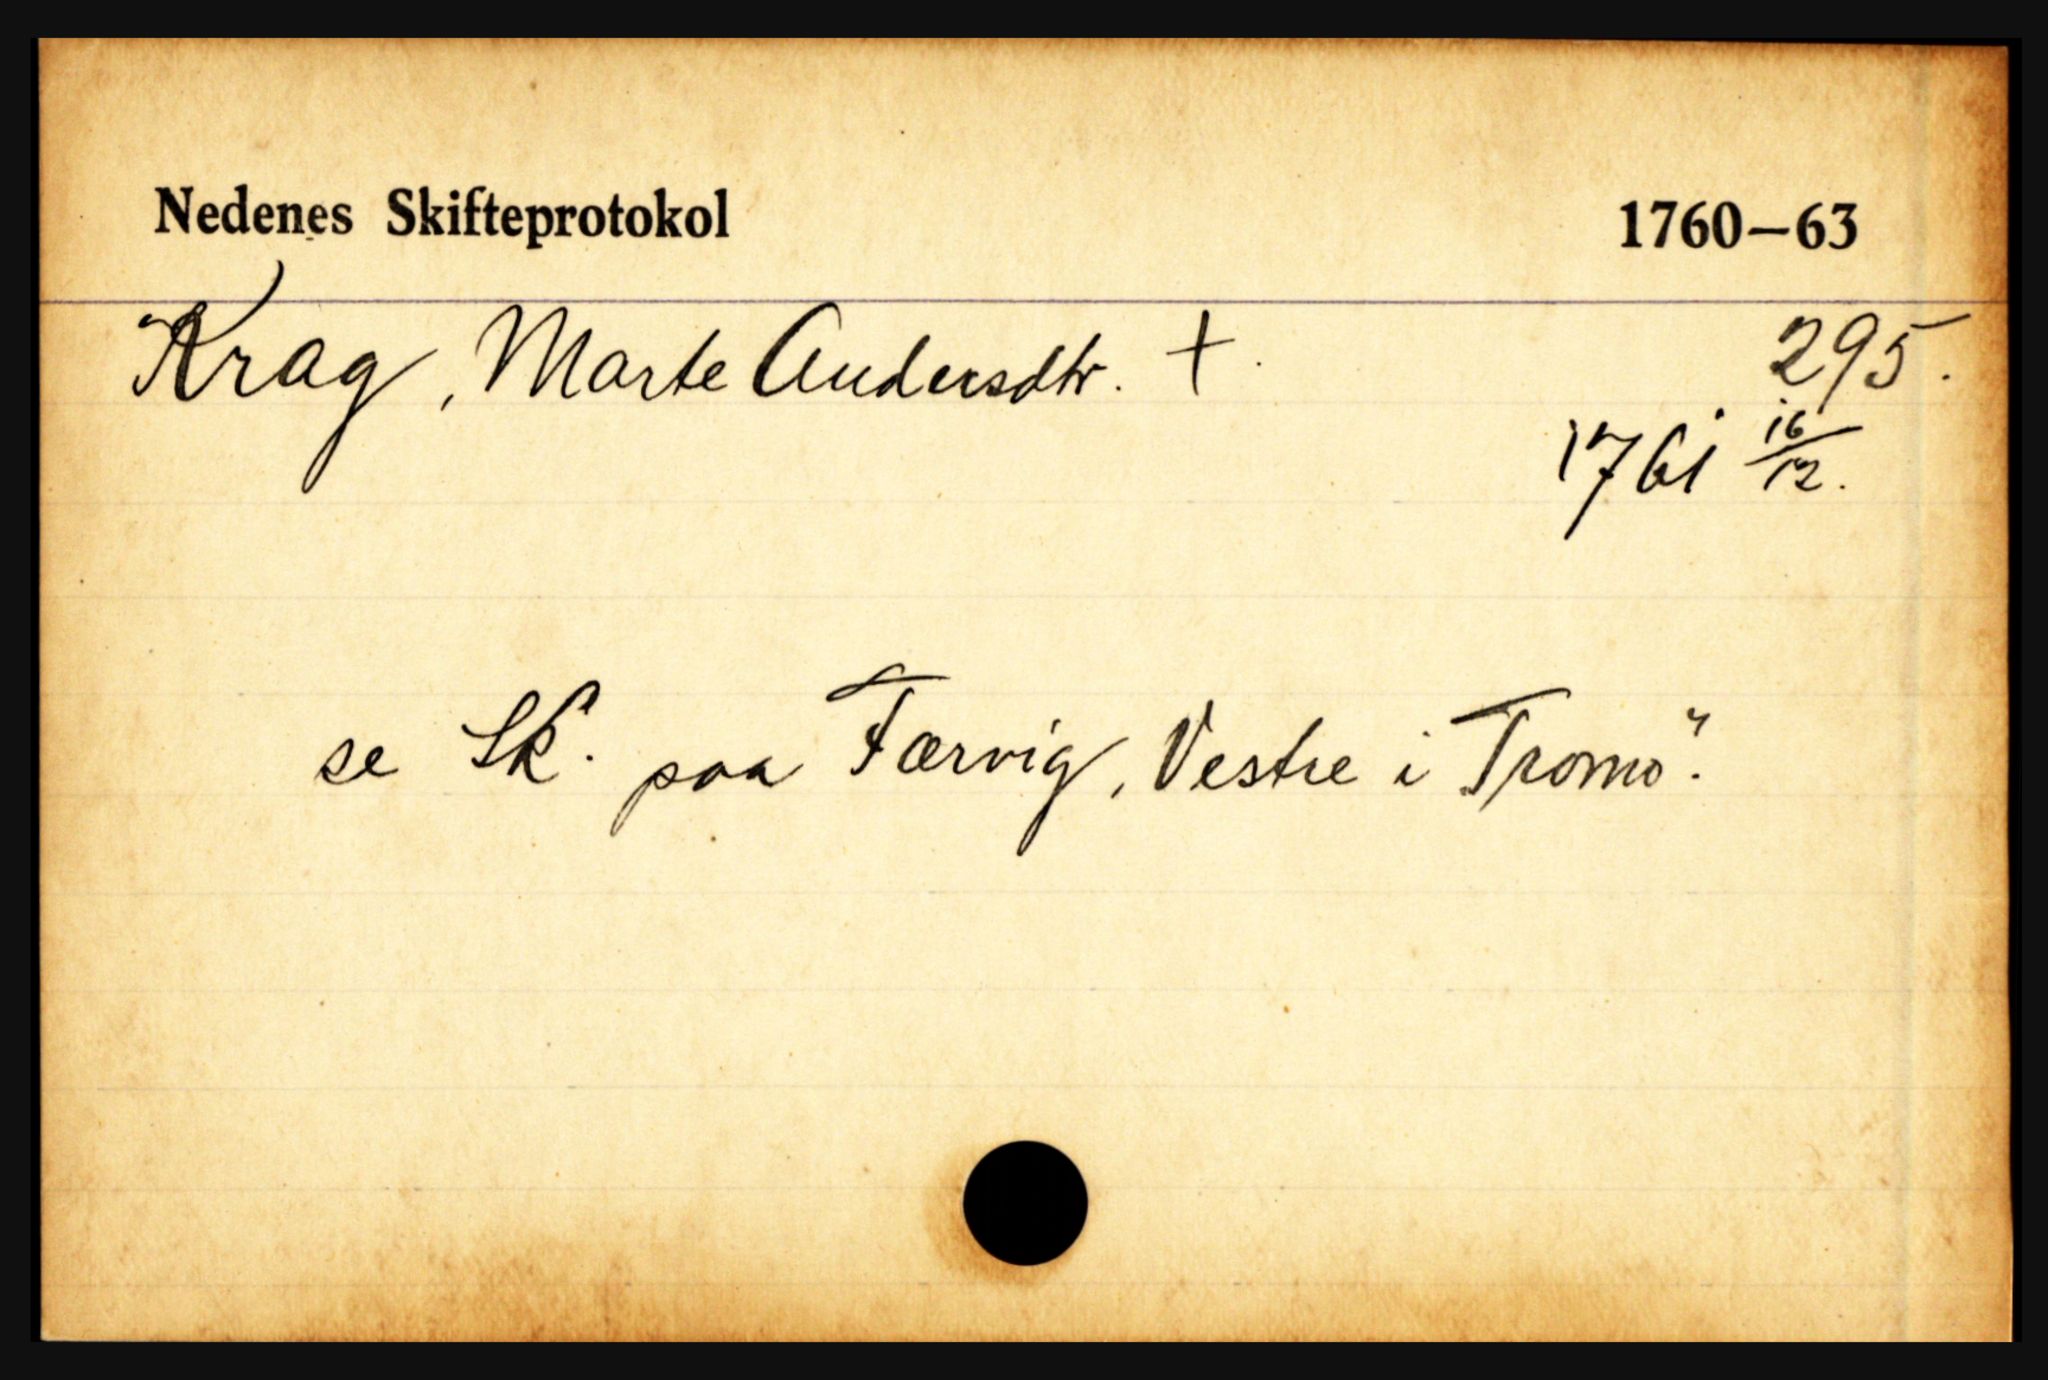 Nedenes Skifteprotokol 1760–63
Krag, Marte Andersdtr. †. 295.
1761 16/12.
se Sk. paa Færvig, Vestre i Tromö.